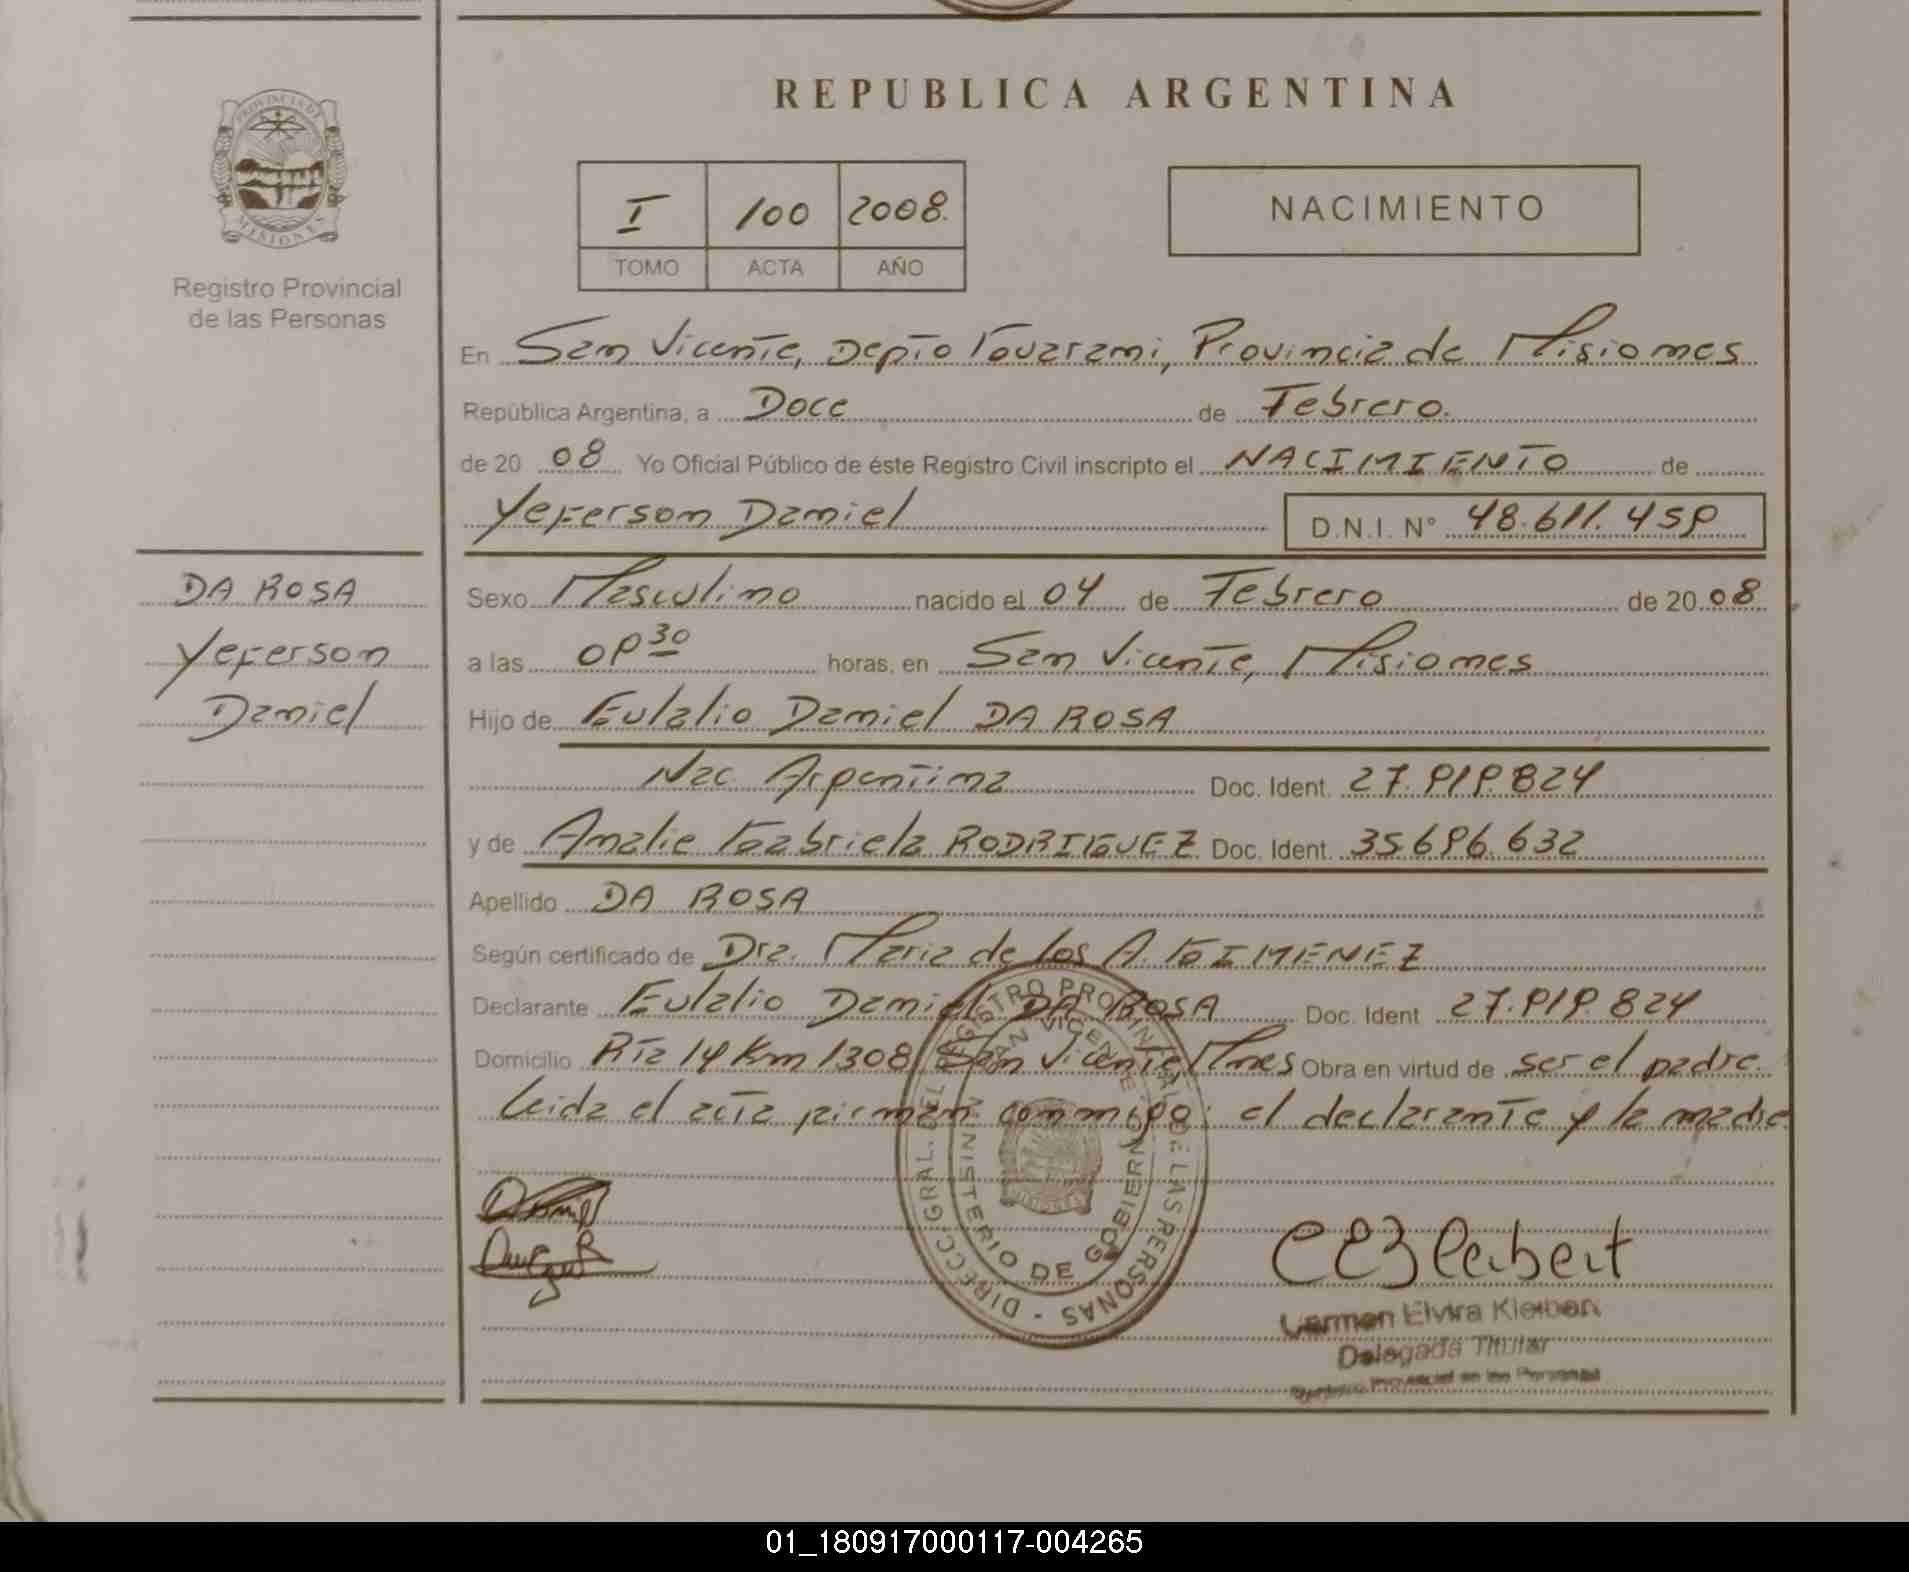 REPUBLICA ARGENTINA
PROVINCIA DE MISIONES
Registro Provincial
de las Personas
I 100 2008.
TOMO ACTA AÑO
NACIMIENTO
En San Vicente, Depto Guarani, Provincia de Misiones
República Argentina, a Doce de Febrero.
de 20 08 Yo Oficial Público de éste Registro Civil inscripto el NACIMIENTO de
Yeferson Daniel D.N.I. N° 48.611.459
DA ROSA
Yeferson
Daniel
Sexo Masculino nacido el 04 de Febrero de 20 08
a las 09 30 horas, en San Vicente, Misiones
Hijo de Eulalio Daniel DA ROSA
Nac. Argentina Doc. Ident. 27.919.824
y de Analie Gabriela RODRIGUEZ Doc. Ident. 35696.632
Apellido DA ROSA
Según certificado de Dra. Maria de los A. GIMENEZ
Declarante Eulalio Daniel DA ROSA Doc. Ident 27.919.824
Domicilio Rta 14 Km 1308 San Vicente, Mnes Obra en virtud de ser el padre.
Leida el acta firman conmigo: el declarante y la madre
DIRECC. GRAL. DEL REGISTRO PROVINCIAL DE LAS PERSONAS -
SAN VICENTE
MINISTERIO DE GOBIERNO
MISIONES
CEKleibert
Carmen Elvira Kleibert
Delegada Titular
Registro Provincial de las Personas
01_180917000117-004265